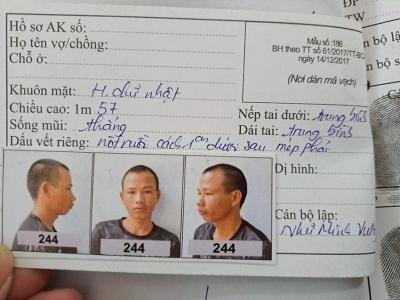 Hồ sơ AK số:
Họ tên vợ/chồng:
Chỗ ở:
Mẫu số: 186
BH theo TT số 61/2017/TT-BCA
ngày 14/12/2017
(Nơi dán mã vạch)
Khuôn mặt: H. chữ nhật
Chiều cao: 1m 57
Nếp tai dưới: trung bình
Sống mũi: thẳng
Dái tai: trung bình
Dấu vết riêng: nốt ruồi cách 1cm dưới sau mép phải
Dị hình:
Cán bộ lập:
Như Minh
244
244
244
TW
bộ lập